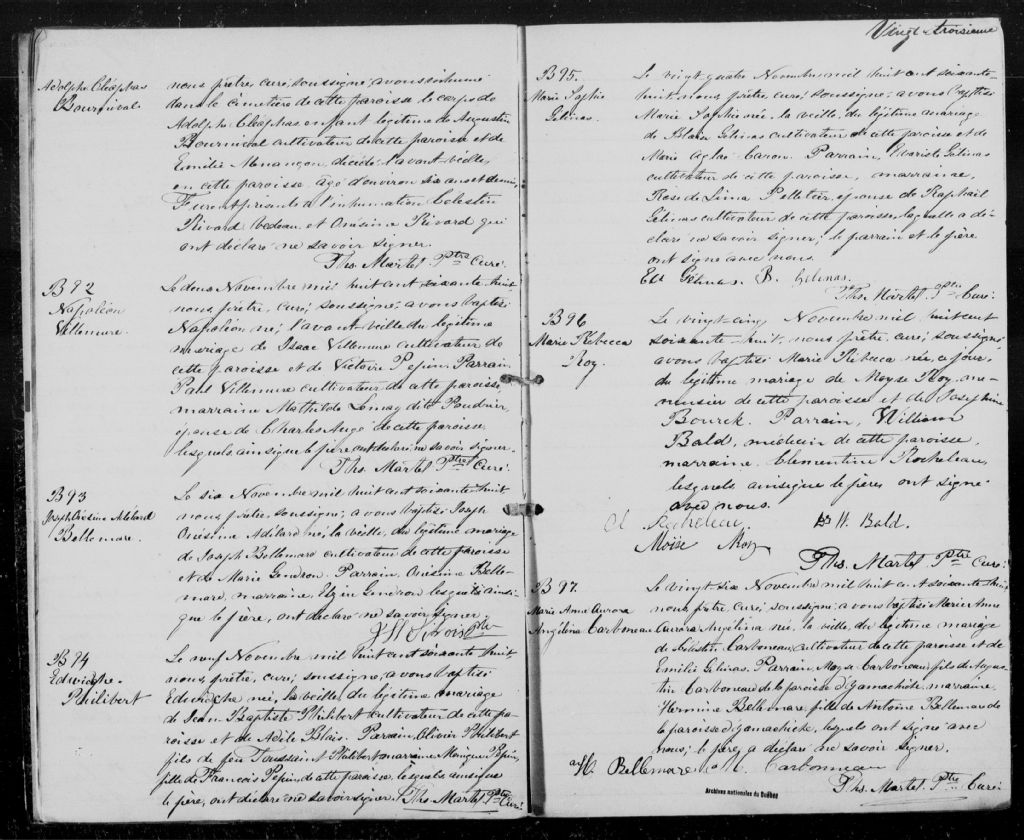 Adolphe Cléophas
Bournival
nous prêtre, curé, soussigné, avons inhumé
dans le cimetière de cette paroisse le corps de
Adolphe Cléophas enfant légitime de Augustin
Bournival cultivateur de cette paroisse et de
Emilie décédé l'avant-veille,
en cette paroisse, âgé d'environ six ans et demi,
Furent présents à l'inhumation Celestin
Rivard bedeau et Onésime Rivard qui
ont déclaré ne savoir signer.
Ths. Martel Ptre Curé.
B 92
Napoléon
Villemure.
Le deux Novembre mil huit cent soixante-huit
nous prêtre, curé, soussigné, avons baptisé
Napoléon né, l'avant-veille du légitime
mariage de Isaac Villemure cultivateur de
cette paroisse et de Victoire Pepin. Parrain
Paul Villemure cultivateur de cette paroisse
marraine Mathilde Lemay dite Poudrier,
épouse de Charles Augé de cette paroisse
lesquels ainsi que le père ont déclaré ne savoir signer.
Ths. Martel Ptre Curé.
B 93
Joseph Onésime Adélard
Bellemare.
Le six Novembre mil huit cent soixante-huit,
nous, prêtre, soussigné, avons baptisé Joseph
Onésime Adélard né, la veille, du légitime mariage
de Joseph Bellemare cultivateur de cette paroisse
et de Marie Gendron. Parrain, Onésime Belle-
mare, marraine, Gendron lesquels ainsi-
que le père, ont déclaré ne savoir signer.
Ptre
B 94
Edwidghe
Philibert
Le neuf Novembre mil huit cent soixante huit,
nous, prêtre, curé, soussigné, avons baptisé
Edwidghe née, la veille du légitime mariage
de Jean Baptiste Philibert cultivateur de cette pa-
roisse et de Adèle Blais. Parrain, Olivier Philibert
fils de feu Toussaint Philibert marraine Pepin,
fille de François Pepin, de cette paroisse, lesquels ainsi que
le père, ont déclaré ne savoir signer. Ths. Martel Ptre Curé.
Vingt troisième
B 95.
Marie Sophie
Gélinas.
Le vingt quatre Novembre mil huit cent soixante-
huit, nous, prêtre, curé, soussigné, avons baptisé
Marie Sophie née, la veille, du légitime mariage
de Blaise Gélinas cultivateur de cette paroisse et de
Marie Aglaé Caron. Parrain, Evariste Gélinas
cultivateur de cette paroisse, marraine,
Rose de Lima Pelletier, épouse de Raphaël
Gélinas cultivateur de cette paroisse, laquelle a dé-
claré ne savoir signer; le parrain et le père
ont signé avec nous.
Gélinas. B. Gelinas.
Ths. Martel Ptre Curé.
B 96
Marie Rebecca
Roy.
Le vingt cinq Novembre mil huit cent
soixante-huit, nous, prêtre, curé, soussigné
avons baptisé Marie Rebecca née, ce jour,
du légitime mariage de Moyse Roy, me-
nuisier de cette paroisse et de Josephine
Bourck. Parrain, William
Bald, médecin de cette paroisse,
marraine, Clementine Rocheleau,
lesquels ainsi que le père ont signé
avec nous.
Cl Rocheleau W. Bald.
Moïse Roy
Ths. Martel Ptre Curé.
B 97.
Marie Anne Aurora
Angélina Carboneau
Le vingt-six Novembre mil huit cent soixante huit
nous, prêtre, curé, soussigné, avons baptisé Marie Anne
Aurora Angélina née, la veille, du légitime mariage
de Célestin Carboneau cultivateur de cette paroisse et de
Emilie Gélinas. Parrain Moyse Carboneau fils de Augus-
tin Carboneau de la paroisse d'Yamachiche, marraine,
Hermine Bellemare, fille de Antoine Bellemare de
la paroisse d'Yamachiche, lesquels ont signé avec
nous; le père a déclaré ne savoir signer.
H. Bellemare M. Carbonneau
Ths. Martel Ptre Curé.
Archives nationales du Québec